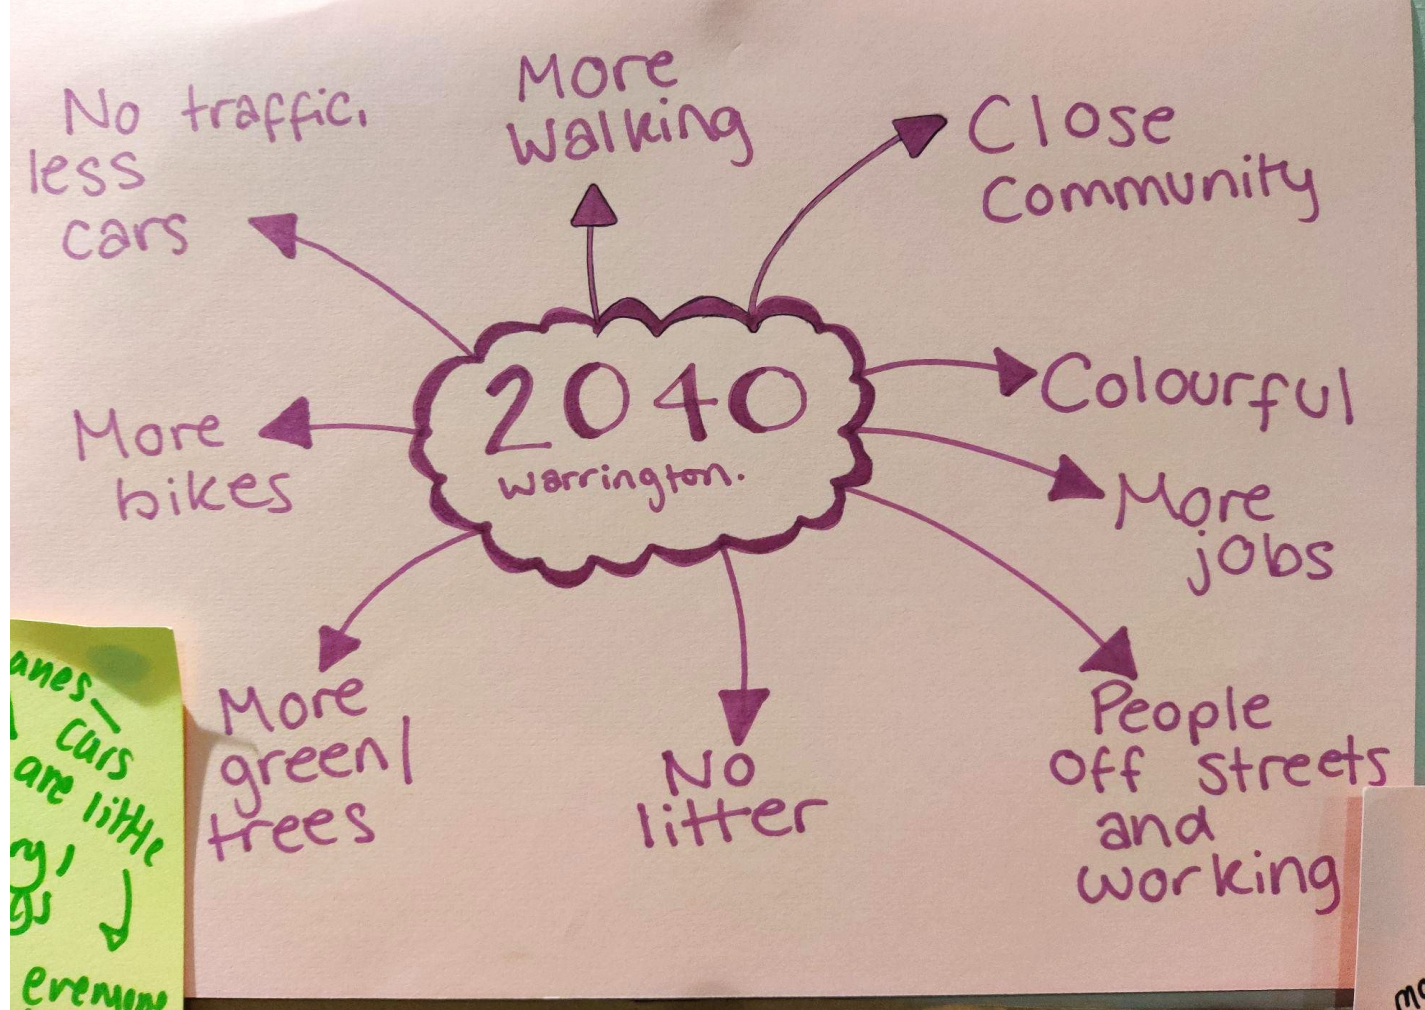 No traffic,
less
cars
More
Walking
Close
Community
2040
Warrington.
Colourful
More
jobs
More
bikes
More
green/
trees
No
litter
People
off streets
and
working
cars
are little